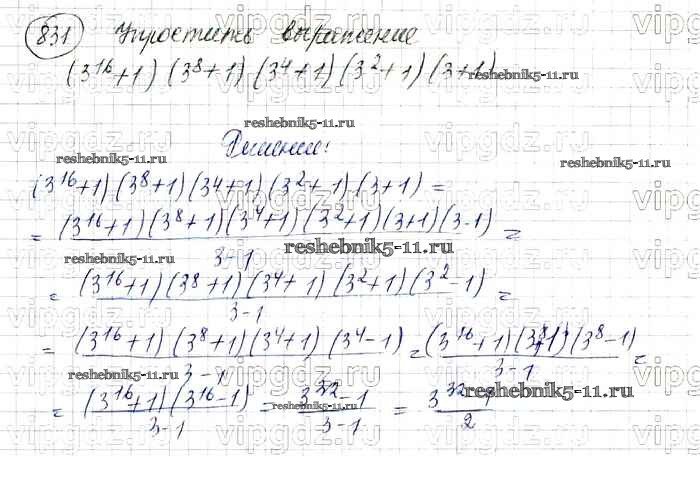 831 Упростить выражение
(3^16+1)(3^8+1)(3^4+1)(3^2+1)(3+1)
reshebnik5-11.ru
Решение:
reshebnik5-11.ru
(3^16+1)(3^8+1)(3^4+1)(3^2+1)(3+1) =
= (3^16+1)(3^8+1)(3^4+1)(3^2+1)(3+1)(3-1) / 3-1 =
= (3^16+1)(3^8+1)(3^4+1)(3^2+1)(3^2-1) / 3-1 =
= (3^16+1)(3^8+1)(3^4+1)(3^4-1) / 3-1 = (3^16+1)(3^8+1)(3^8-1) / 3-1 =
= (3^16+1)(3^16-1) / 3-1 = 3^32-1 / 3-1 = 3^32-1 / 2
reshebnik5-11.ru
vipgdz.ru